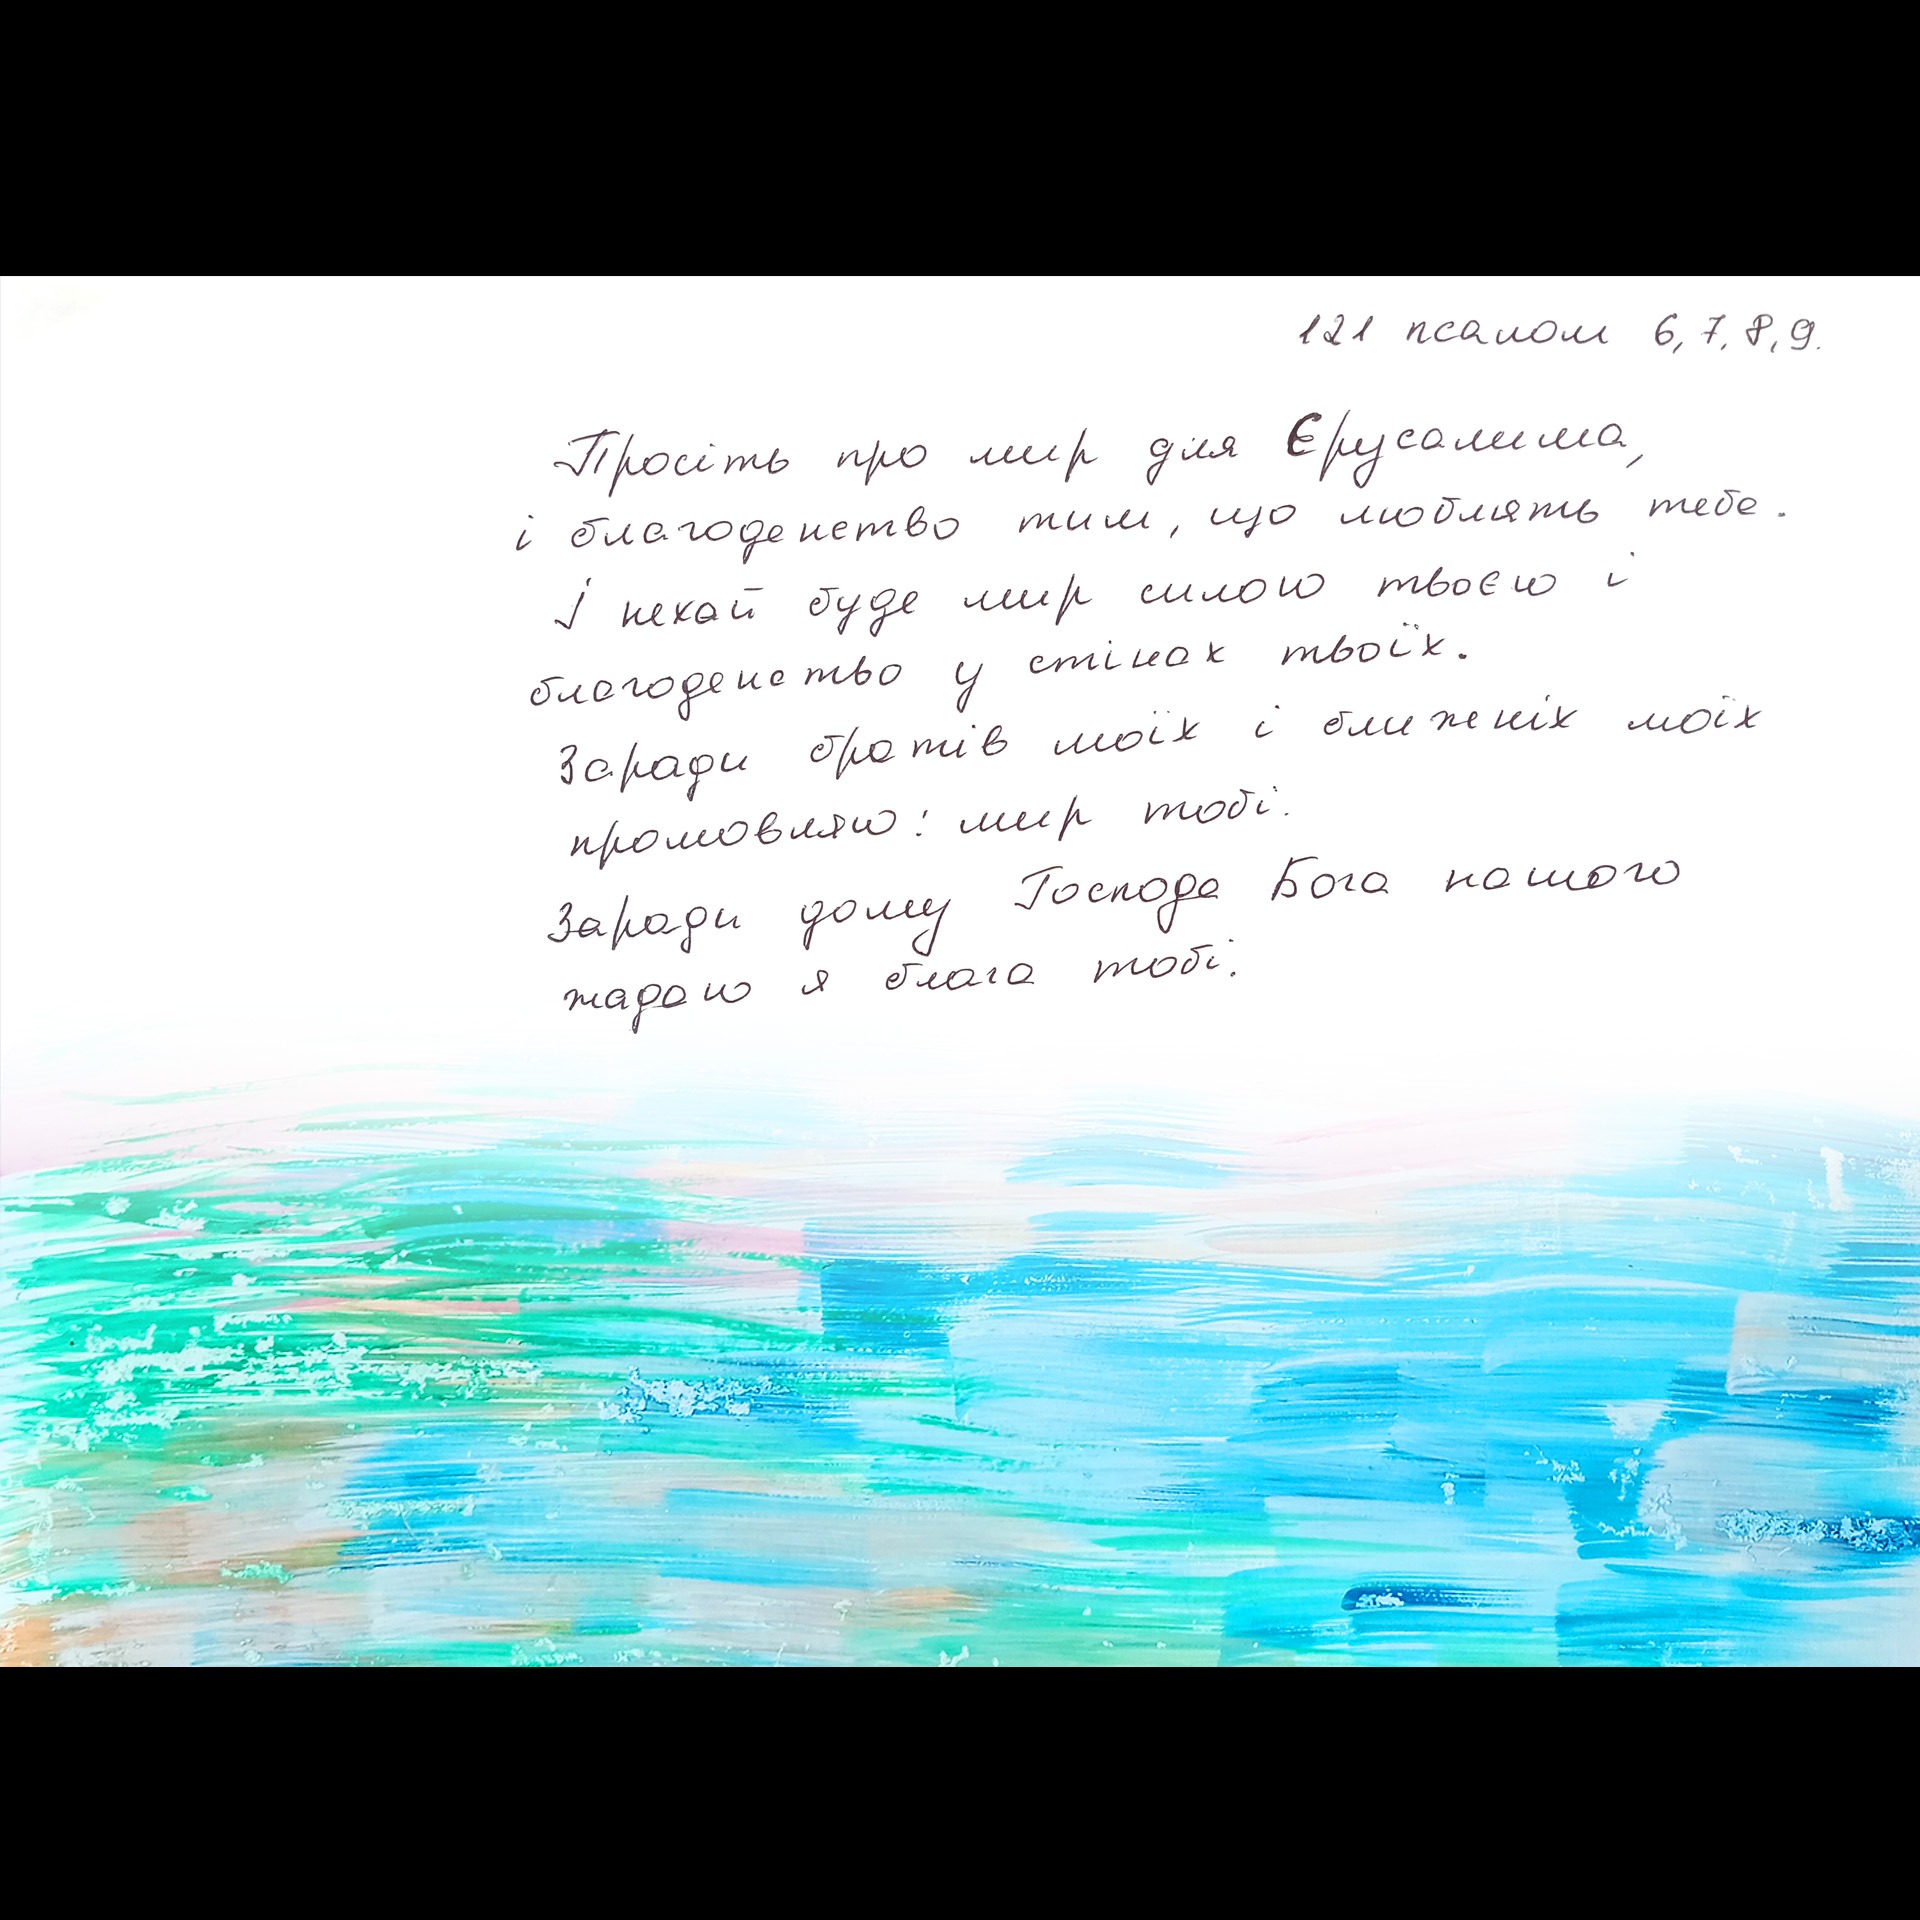 121 псалом 6, 7, 8, 9.
Просіть про мир для Єрусалима,
і благоденство тим, що люблять тебе.
І нехай буде мир силою твоєю і
благоденство у стінах твоїх.
Заради братів моїх і ближніх моїх
промовляю: мир тобі.
Заради дому Господа Бога нашого
жадаю я блага тобі.